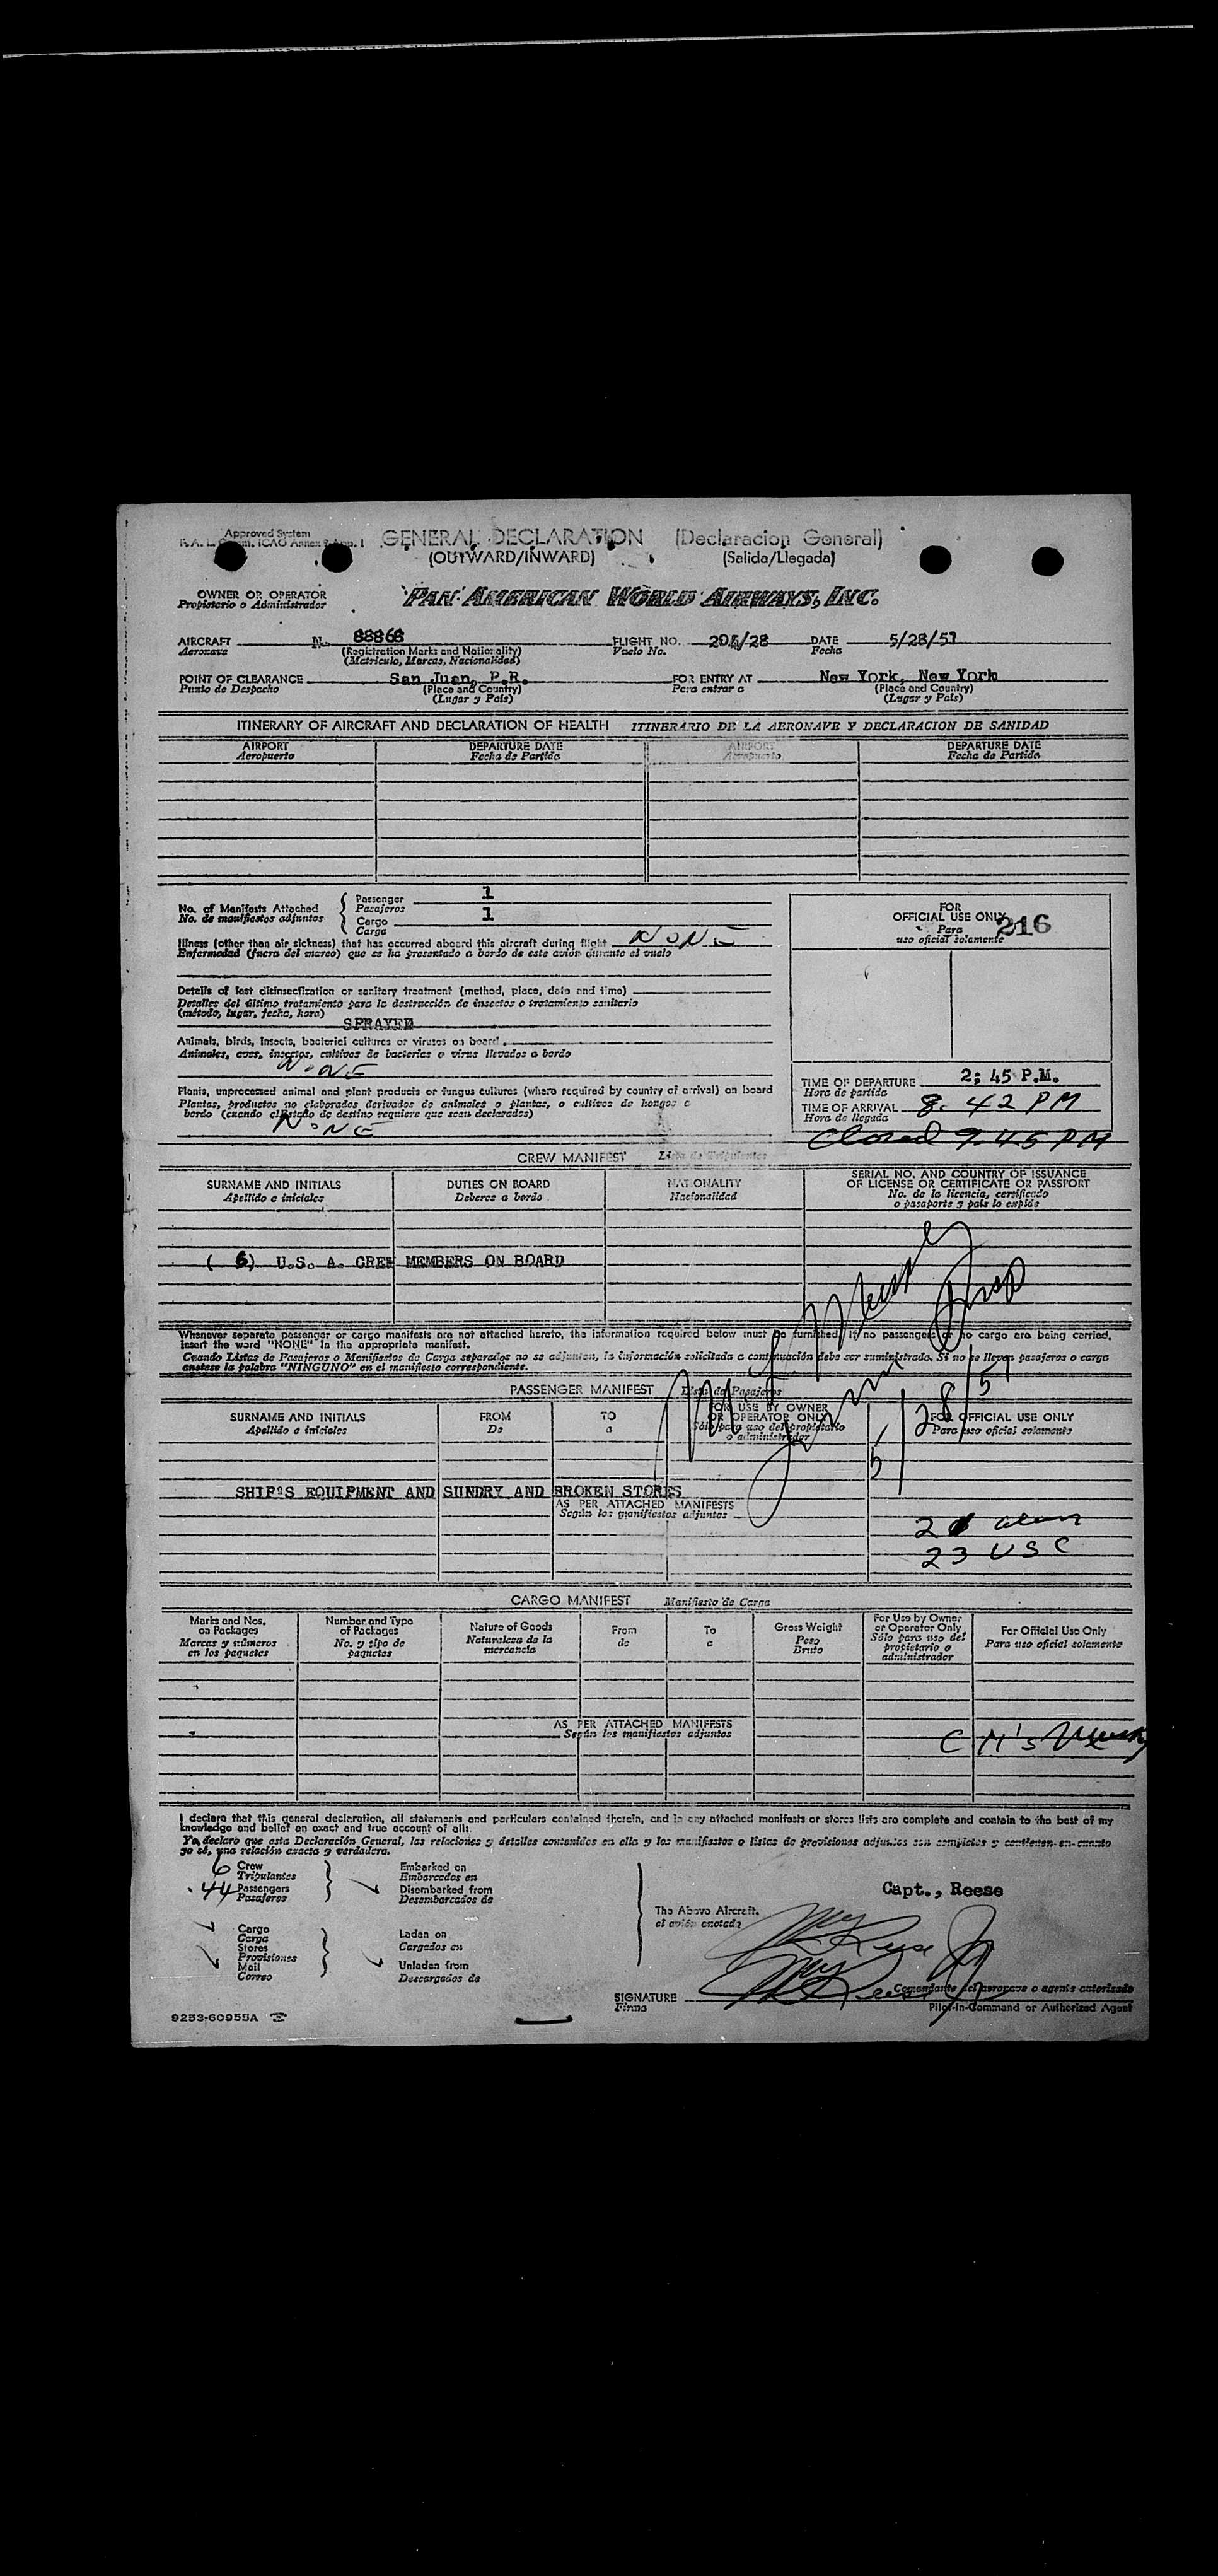 Approved System
GENERAL DECLARATION (Declaracion General)
(OUTWARD/INWARD) (Salida/Llegada)
OWNER OR OPERATOR
Propietario o Administrador
PAN AMERICAN WORLD AIRWAYS, INC.
AIRCRAFT N. 88868 FLIGHT NO. DATE 5/28/51
Aeronave (Registration Marks and Nationality) Vuelo No. Fecha
(Matricula, Marcas, Nacionalidad)
POINT OF CLEARANCE San Juan, P.R. FOR ENTRY AT New York, New York
Punto de Despacho (Place and Country) Para entrar a (Place and Country)
(Lugar y País) (Lugar y País)
ITINERARY OF AIRCRAFT AND DECLARATION OF HEALTH ITINERARIO DE LA AERONAVE Y DECLARACION DE SANIDAD
AIRPORT DEPARTURE DATE AIRPORT DEPARTURE DATE
Aeropuerto Fecha de Partida Aeropuerto Fecha de Partida
No. of Manifests Attached
No. de manifiestos adjuntos
Passenger 1
Pasajeros
Cargo 1
Carga
Illness (other than air sickness) that has occurred aboard this aircraft during flight NONE
Enfermedad (fuera del mareo) que se ha presentado a bordo de este avión durante el vuelo
Details of last disinsectization or sanitary treatment (method, place, date and time)
Detalles del último tratamiento para la destrucción de insectos o tratamiento sanitario
(método, lugar, fecha, hora)
SPRAYED
Animals, birds, insects, bacterial cultures or viruses on board
Animales, aves, insectos, cultivos de bacterias o virus llevados a bordo
NONE
Plants, unprocessed animal and plant products or fungus cultures (where required by country of arrival) on board
Plantas, productos no elaborados derivados de animales o plantas, o cultivos de hongos a
bordo (cuando el Estado de destino requiere que sean declarados)
NONE
FOR
OFFICIAL USE ONLY
Para
uso oficial solamente
216
TIME OF DEPARTURE 2:45 P.M.
Hora de partida
TIME OF ARRIVAL 8:42 PM
Hora de llegada
Closed 9:45 PM
CREW MANIFEST Lista de Tripulantes
SURNAME AND INITIALS DUTIES ON BOARD NATIONALITY SERIAL NO. AND COUNTRY OF ISSUANCE
OF LICENSE OR CERTIFICATE OR PASSPORT
Apellido e iniciales Deberes a bordo Nacionalidad No. de la licencia, certificado
o pasaporte y país lo expide
( 6) U.S. A. CREW MEMBERS ON BOARD
Whenever separate passenger or cargo manifests are not attached hereto, the information required below must be furnished. If no passengers or no cargo are being carried,
insert the word "NONE" in the appropriate manifest.
Cuando Listas de Pasajeros o Manifiestos de Carga separados no se adjuntan, la información solicitada a continuación debe ser suministrada. Si no se lleven pasajeros o carga
anotese la palabra "NINGUNO" en el manifiesto correspondiente.
5/28/51
PASSENGER MANIFEST Lista de Pasajeros
SURNAME AND INITIALS FROM TO FOR USE BY OWNER
OR OPERATOR ONLY FOR OFFICIAL USE ONLY
Apellido e iniciales De a Sólo para uso del propietario
o administrador Para uso oficial solamente
SHIP'S EQUIPMENT AND SUNDRY AND BROKEN STORES
AS PER ATTACHED MANIFESTS
Según los manifiestos adjuntos
23 USC
CARGO MANIFEST Manifiesto de Carga
Marks and Nos.
on Packages
Marcas y números
en los paquetes
Number and Type
of Packages
No. y tipo de
paquetes
Nature of Goods
Naturaleza de la
mercancía
From
de
To
a
Gross Weight
Peso
Bruto
For Use by Owner
or Operator Only
Sólo para uso del
propietario o
administrador
For Official Use Only
Para uso oficial solamente
AS PER ATTACHED MANIFESTS
Según los manifiestos adjuntos
I declare that this general declaration, all statements and particulars contained therein, and in any attached manifests or stores lists are complete and contain to the best of my
knowledge and belief an exact and true account of all:
Yo declaro que esta Declaración General, las relaciones y detalles contenidos en ella y los manifiestos o listas de provisiones adjuntos son completos y contienen en cuanto
yo sé, una relación exacta y verdadera.
6 Crew
Tripulantes
44 Passengers
Pasajeros
Embarked on
Embarcados en
Disembarked from
Desembarcados de
Cargo
Carga
Stores
Provisiones
Mail
Correo
Laden on
Cargados en
Unladen from
Descargados de
The Above Aircraft.
el avión anotado
Capt., Reese
SIGNATURE
Firma
Comandante del aeronave o agente autorizado
Pilot-in-Command or Authorized Agent
9253-60955A